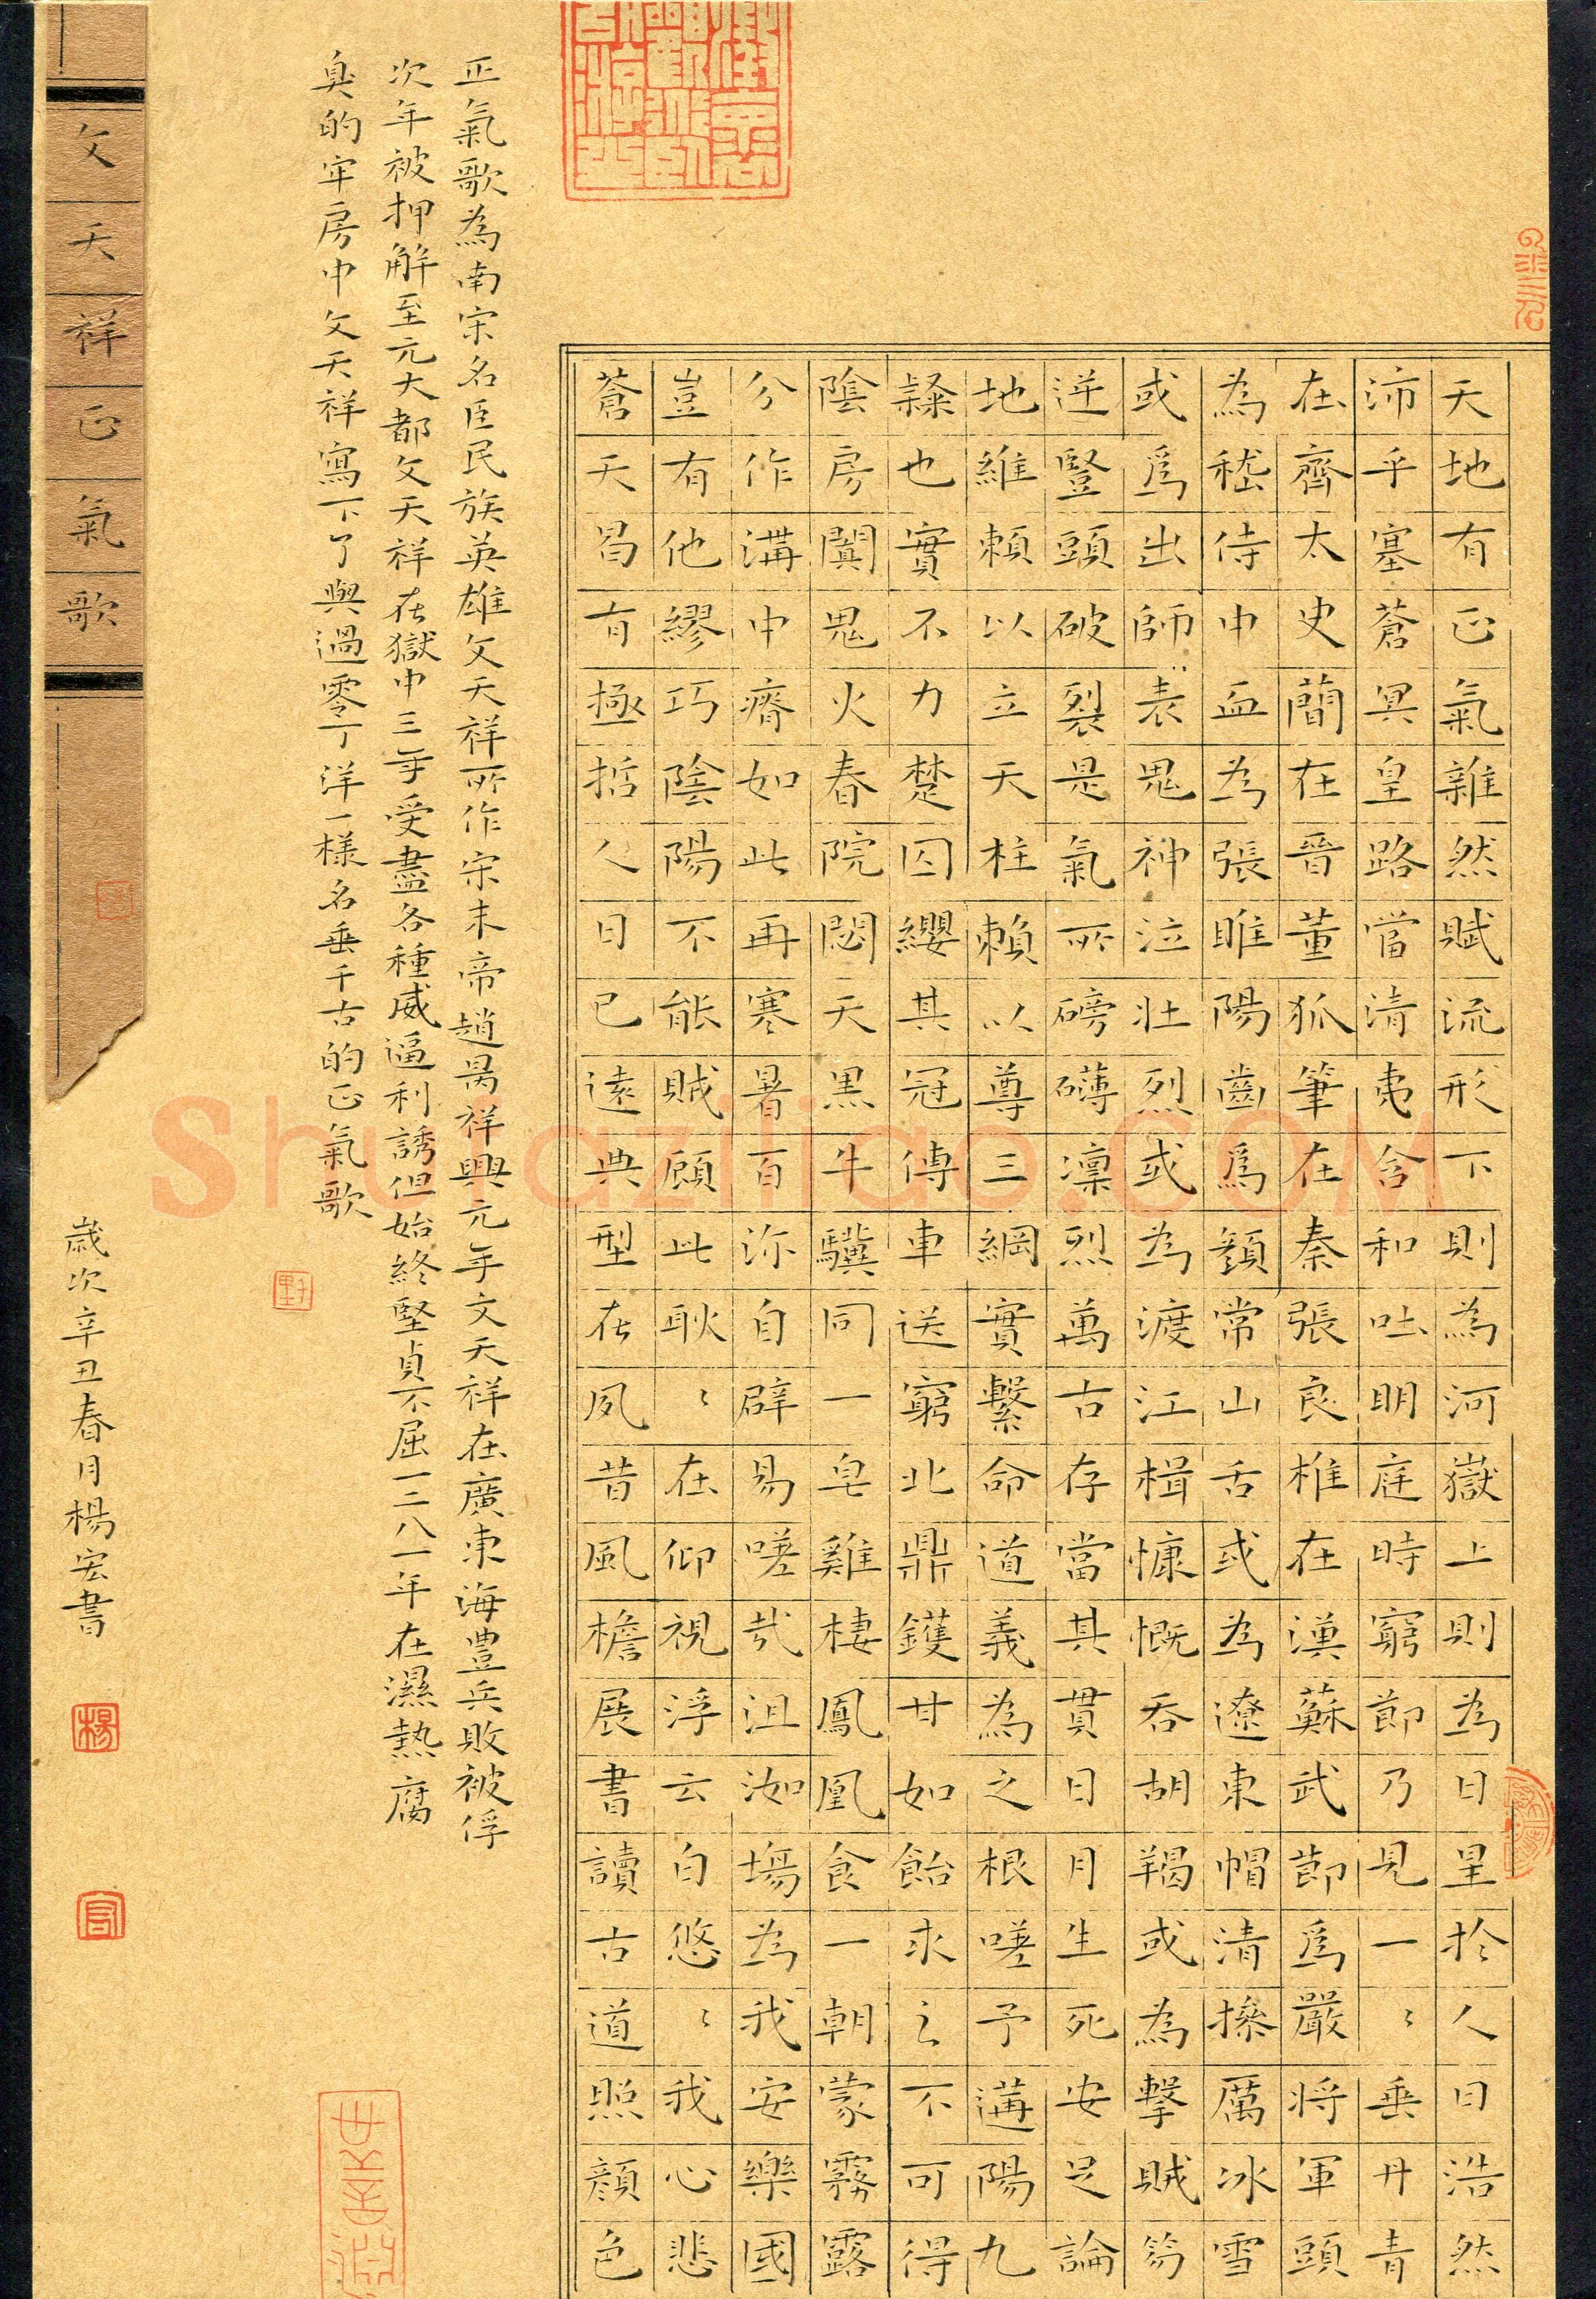 天地有正氣雜然賦流形下則為河嶽上則為日星於人曰浩然
沛乎塞蒼冥皇路當清夷含和吐明庭時窮節乃見一〻垂丹青
在齊太史簡在晉董狐筆在秦張良椎在漢蘇武節為嚴將軍頭
為嵇侍中血為張睢陽齒為顏常山舌或為遼東帽清操厲冰雪
或為出師表鬼神泣壯烈或為渡江楫慷慨吞胡羯或為擊賊笏
逆豎頭破裂是氣所磅礴凜烈萬古存當其貫日月生死安足論
地維賴以立天柱賴以尊三綱實繫命道義為之根嗟予遘陽九
隸也實不力楚囚纓其冠傳車送窮北鼎鑊甘如飴求之不可得
陰房闃鬼火春院閟天黑牛驥同一皂雞棲鳳凰食一朝蒙霧露
分作溝中瘠如此再寒暑百沴自辟易嗟哉沮洳場為我安樂國
豈有他繆巧陰陽不能賊顧此耿〻在仰視浮云白悠〻我心悲
蒼天曷有極哲人日已遠典型在夙昔風檐展書讀古道照顏色
正氣歌為南宋名臣民族英雄文天祥所作宋末帝趙昺祥興元年文天祥在廣東海豐兵敗被俘
次年被押解至元大都文天祥在獄中三年受盡各種威逼利誘但始終堅貞不屈一二八一年在濕熱腐
臭的牢房中文天祥寫下了與過零丁洋一樣名垂千古的正氣歌
文天祥正氣歌
歲次辛丑春月楊宏書
楊
宏
shufaziliao.COM